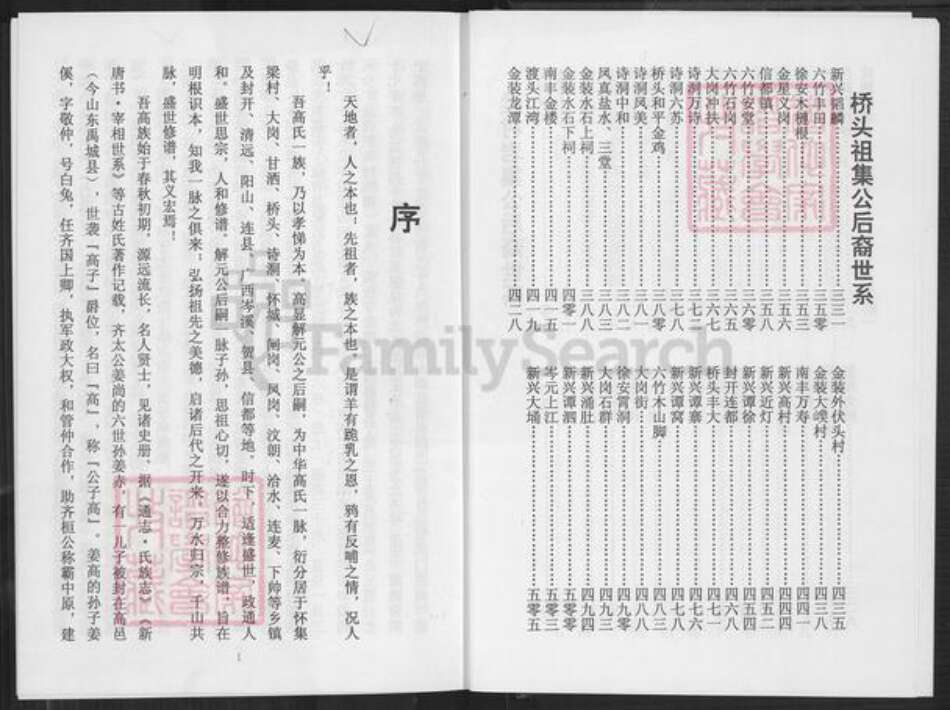 桥头祖集公后裔世系
新兴韬麟……三三一
六竹丰田……三五零
徐安木槵根……三五三
金星义岗……三五六
信都镇……三五八
六竹安堂……三六零
六竹石岗……三六五
大岗冲扶……三六七
诗洞万诗……三七二
诗洞六苏……三七八
桥头和平金鸡……三八零
诗洞凤美……三八一
诗洞中和……三八二
凤真盐水、三堂……三八三
金装水石上祠……三八八
金装水石下祠……四零一
南丰金楼……四一五
渡头江湾……四一九
金装龙潭……四二八
金装外伏头村……四三五
金装大㙟村……四三八
南丰万寿……四四一
新兴高村……四四四
新兴近灯……四五二
新兴谭徐……四五四
封开连都……四六八
桥头丰大……四七一
新兴谭寨……四七六
新兴谭窝……四七八
六竹木山脚……四八三
大岗街……四八八
徐安霄洞……四九零
大岗石群……四九三
新兴涌肚……四九四
新兴谭泗……五零零
岑元上江……五零三
新兴大埇……五零五
序
天地者，人之本也；先祖者，族之本也。是谓羊有跪乳之恩，鸦有反哺之情，况人
乎！
吾高氏一族，乃以孝悌为本。高显解元公之后嗣，为中华高氏一脉，衍分居于怀集
梁村、大岗、甘洒、桥头、诗洞、怀城、闸岗、凤岗、汶朗、洽水、连麦、下帅等乡镇
及封开、清远、阳山、连县、广西岑溪、贺县、信都等地。时下，适逢盛世，政通人
和。盛世思宗，人和修谱。解元公后嗣，脉子孙，思祖心切，遂以合力整修族谱，旨在
明根识本，知我一脉之俱来；弘扬祖先之美德，启诸后代之开来。万水归宗，千山共
脉，盛世修谱，其义宏焉！
吾高族始于春秋初期，源远流长，名人贤士，见诸史册。据《通志·氏族志》《新
唐书·宰相世系》等古姓氏著作记载，齐太公姜尚的六世孙姜赤，有一儿子被封在高邑
（今山东禹城县），世袭『高子』爵位，名曰『高』，称『公子高』。姜高的孙子姜
傒，字敬仲，号白兔，任齐国上卿，执军政大权，和管仲合作，助齐桓公称霸中原，建
1
FamilySearch